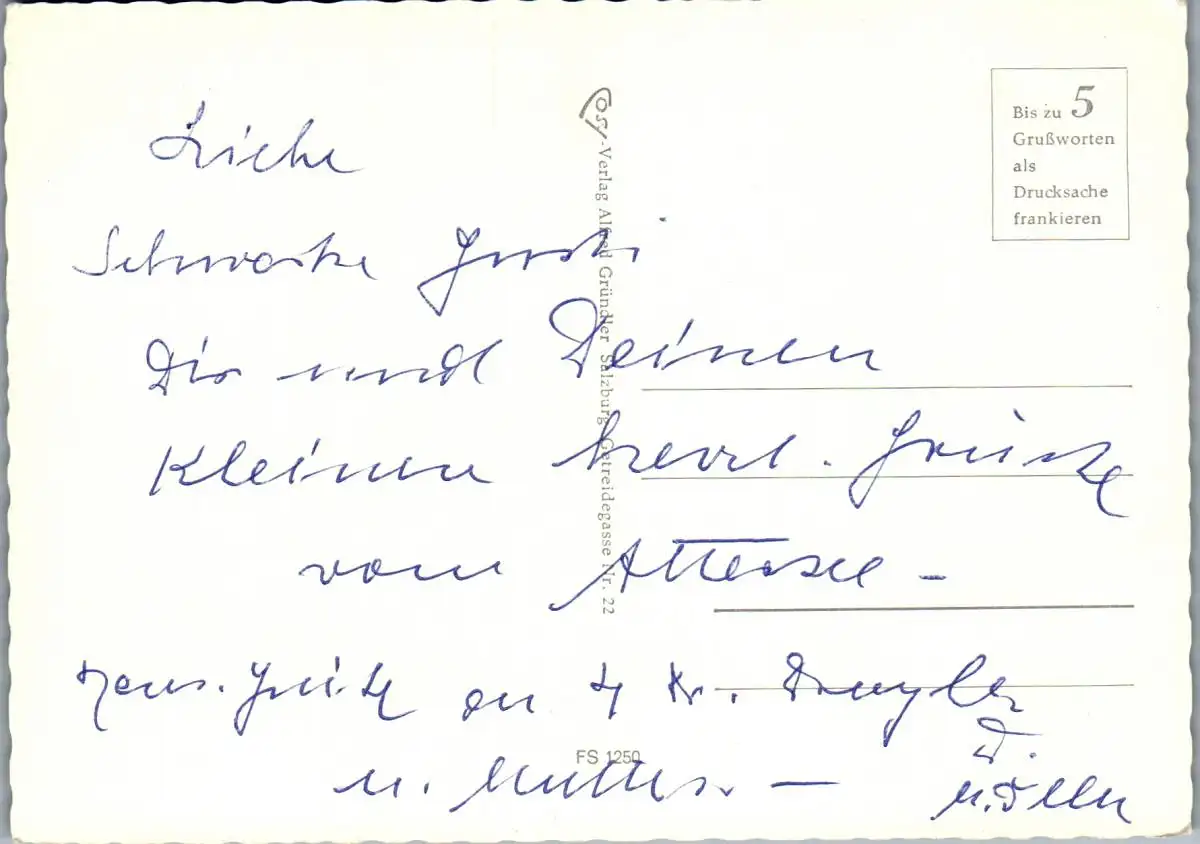 Liebe
Schwester Gusti
Dir und Deinen
Kleinen herzl. Grüße
vom Attersee -
Grüße an
u. Mutter. —
Cosy-Verlag Alfred Gründler Salzburg Getreidegasse Nr. 22
Bis zu 5
Grußworten
als
Drucksache
frankieren
FS 1250